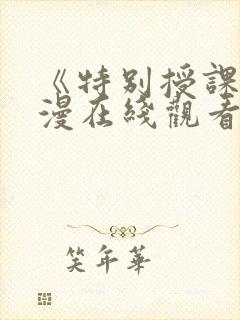 《特別授課
漫在綫觀看
笑年華